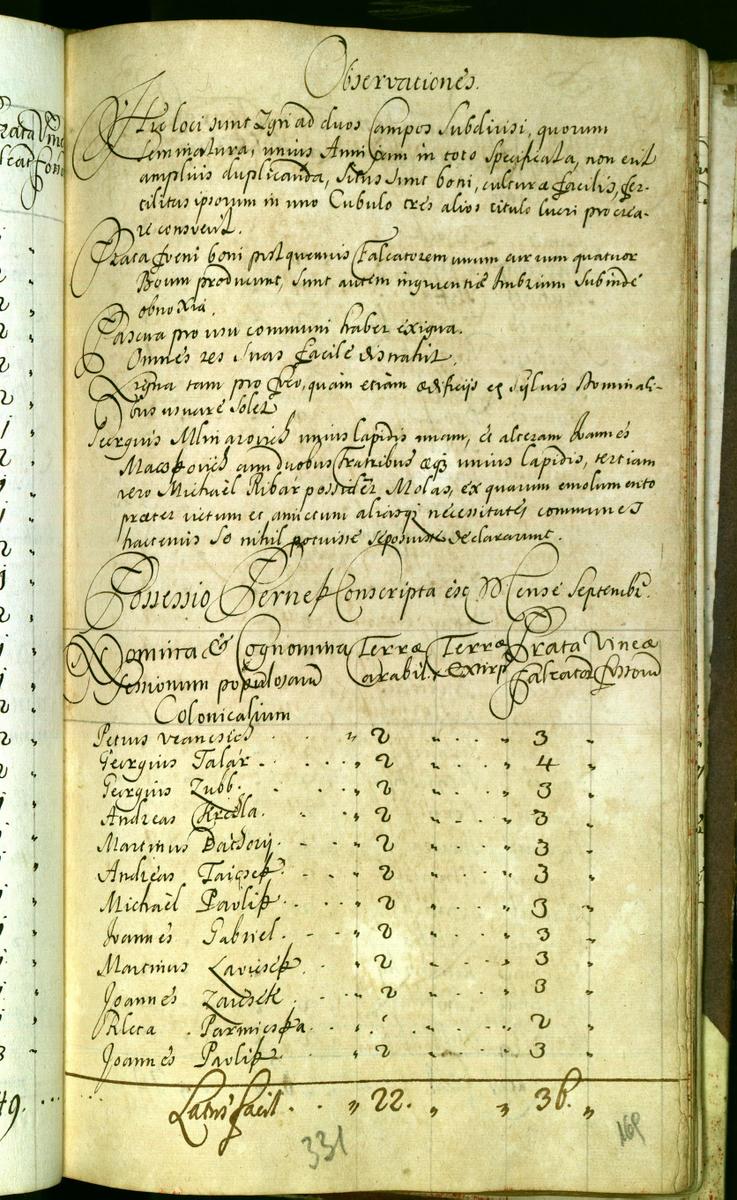 Observationes.
Hic loci sunt Agri ad duos Campos Subdivisi, quorum
seminatura, unius Anni cum in toto specificata, non erit
amplius duplicanda, situs sunt boni, culturæ facilis, fer-
tilitas ipsorum in uno Cubulo tres alios titulo lucri procrea-
re consvevit.
Prata foeni boni post quemvis Falcatorem unum currum quatuor
Boum producunt, sunt autem ingruentiæ Imbrium Subinde
obnoxia.
Pascua pro usu communi habet exigua.
Omnes res suas facile distrahit.
Ligna tam pro foco, quam etiam ædificijs ex sylvis Dominali-
bus usuare solet.
Georgius Mlinarovich unius lapidis unam, et alteram Joannes
cum duobus Fratribus æq3 unius lapidis, tertiam
vero Michaël Ribár possidet Molas, ex quarum emolumento
præter victum et amictum aliasq3 necessitates communes
hactenus se nihil potuisse seposuisse declararunt.
Possessio Pernek Conscripta est Mense Septembr.
Nomina & Cognomina Terræ Terræ Prata Vineæ
Sessionum populosarum arabil. Extirp. Falcator. Fossorum
Colonicalium
Petrus . . . „ 2 „ . . „ 3 „
Georgius Talár . . . „ 2 „ . . „ 4 „
Georgius Zubb. . . . „ 2 „ . . „ 3 „
Andreas . . . „ 2 „ . . „ 3 „
Martinus . . . „ 2 „ . . „ 3 „
Andreas . . . „ 2 „ . . „ 3 „
Michaël Pavlik . . . „ 2 „ . . „ 3 „
Joannes Gabriel . . . „ 2 „ . . „ 3 „
Martinus . . . „ 2 „ . . „ 3 „
Joannes . . . „ 2 „ . . „ 3 „
. . . „ . . „ 2 „
Joannes Pavlik . . . „ 2 „ . . „ 3 „
Latus facit . . „ 22. „ „ 36. „
331
169